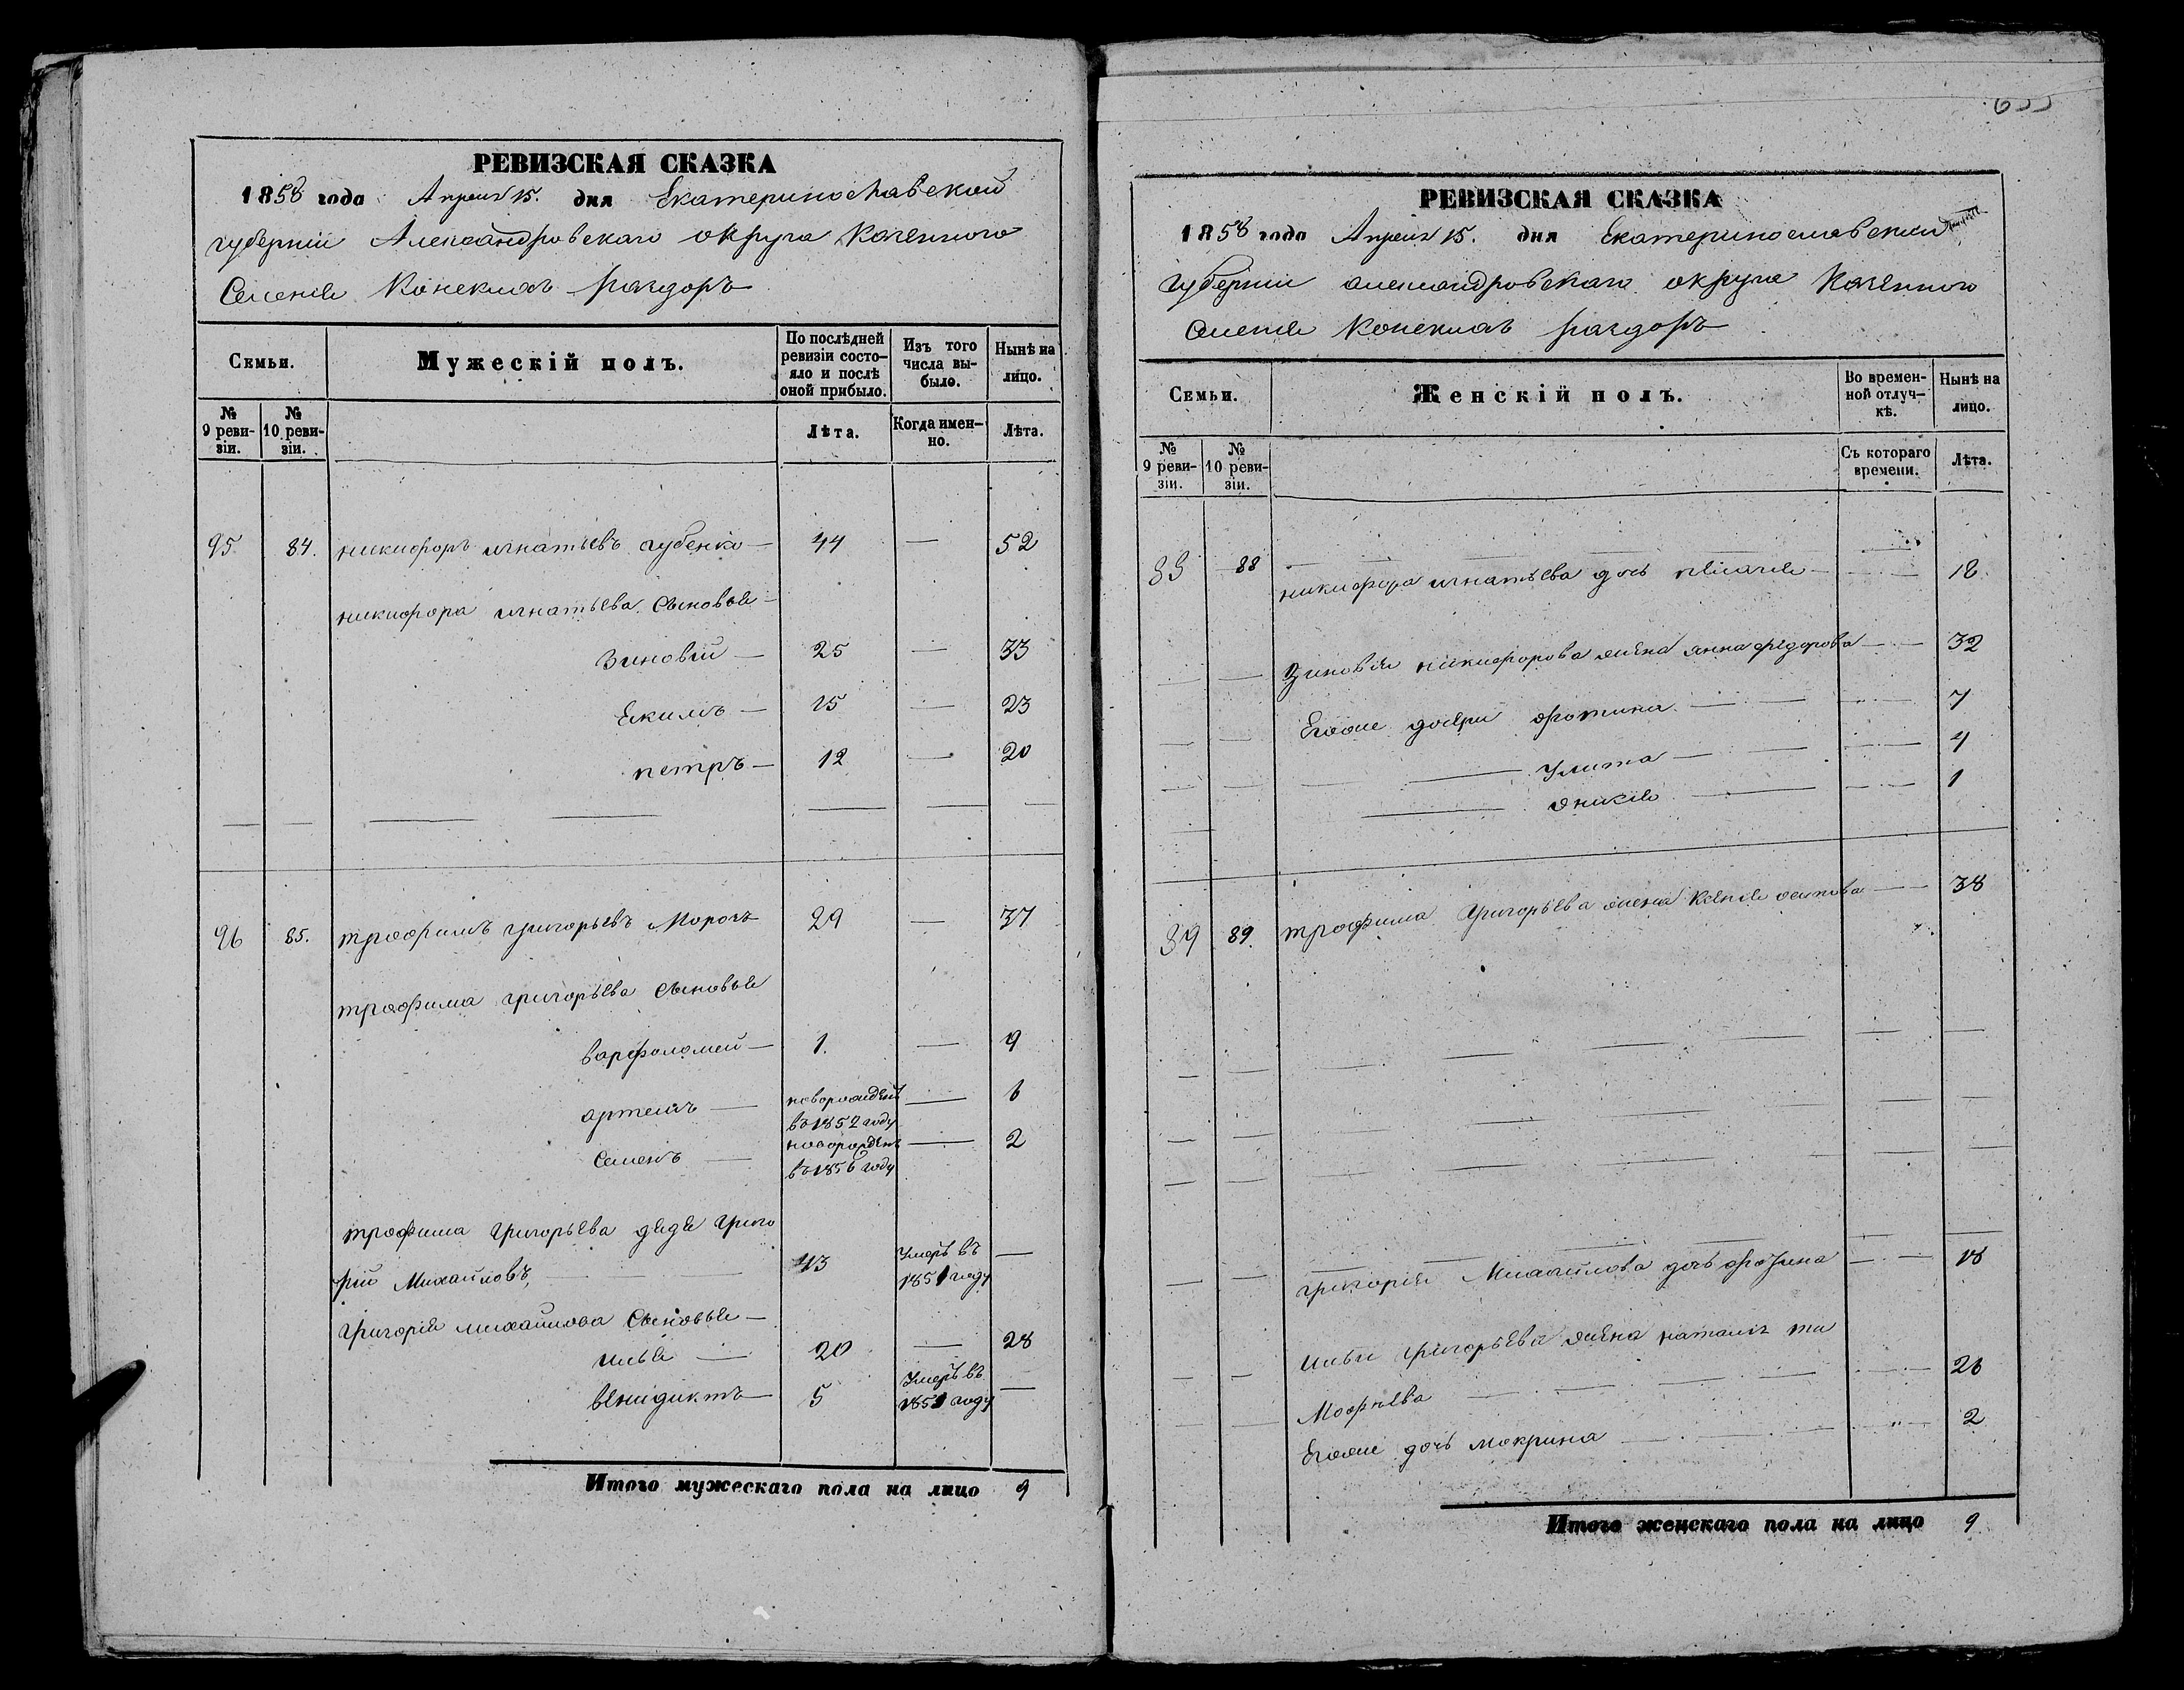 РЕВИЗСКАЯ СКАЗКА
1858 года Апреля 15. дня Екатеринославской
губерніи Александровскаго округа Казенного
Селенія Конскихъ раздоръ
Семьи. Мужескій полъ. По послѣдней ревизіи состояло и послѣ оной прибыло. Изъ того числа выбыло. Нынѣ на лицо.
№ 9 ревизіи. № 10 ревизіи. Лѣта. Когда именно. Лѣта.
95. 84. никифоръ игнатьевъ губенко — 44 — 52
никифора игнатьева сыновья —
зиновій — 25 — 33
Екимъ — 15 — 23
петръ — 12 — 20
96 85. трофимъ григорьевъ Морозъ 29 — 37
трофима григорьева сыновья
варфоломей — 1. — 9
артемъ — новорожденъ — 6
въ 1852 году
семенъ — новорожденъ — 2
въ 1856 году
трофима григорьева дядя григо
рій Михайловъ, 43 Умеръ въ —
1851 году
григорія михайлова сыновья —
илья — 20 — 28
венидиктъ — 5 Умеръ въ —
1851 году
Итого мужескаго пола на лицо 9
РЕВИЗСКАЯ СКАЗКА
1858 года Апреля 15. дня Екатеринославской
губерніи александровскаго округа Казенного
селенія Конскихъ раздоръ
Семьи. Женскій полъ. Во временной отлучкѣ. Нынѣ на лицо.
№ 9 ревизіи. № 10 ревизіи. Съ котораго времени. Лѣта.
88 никифора игнатьева дочь пелагия — 18
Зиновія никифорова жена анна федорова — 32
Егоже дочери фотина — 7
Улита — 4
1
89. трофима григорьева жена Ксенія осипова — 38
григорія Михайлова дочь 18
ильи григорьева жена наталія ти
мофѣева — 26
Егоже дочь макрина — 2
Итого женскаго пола на лицо 9.